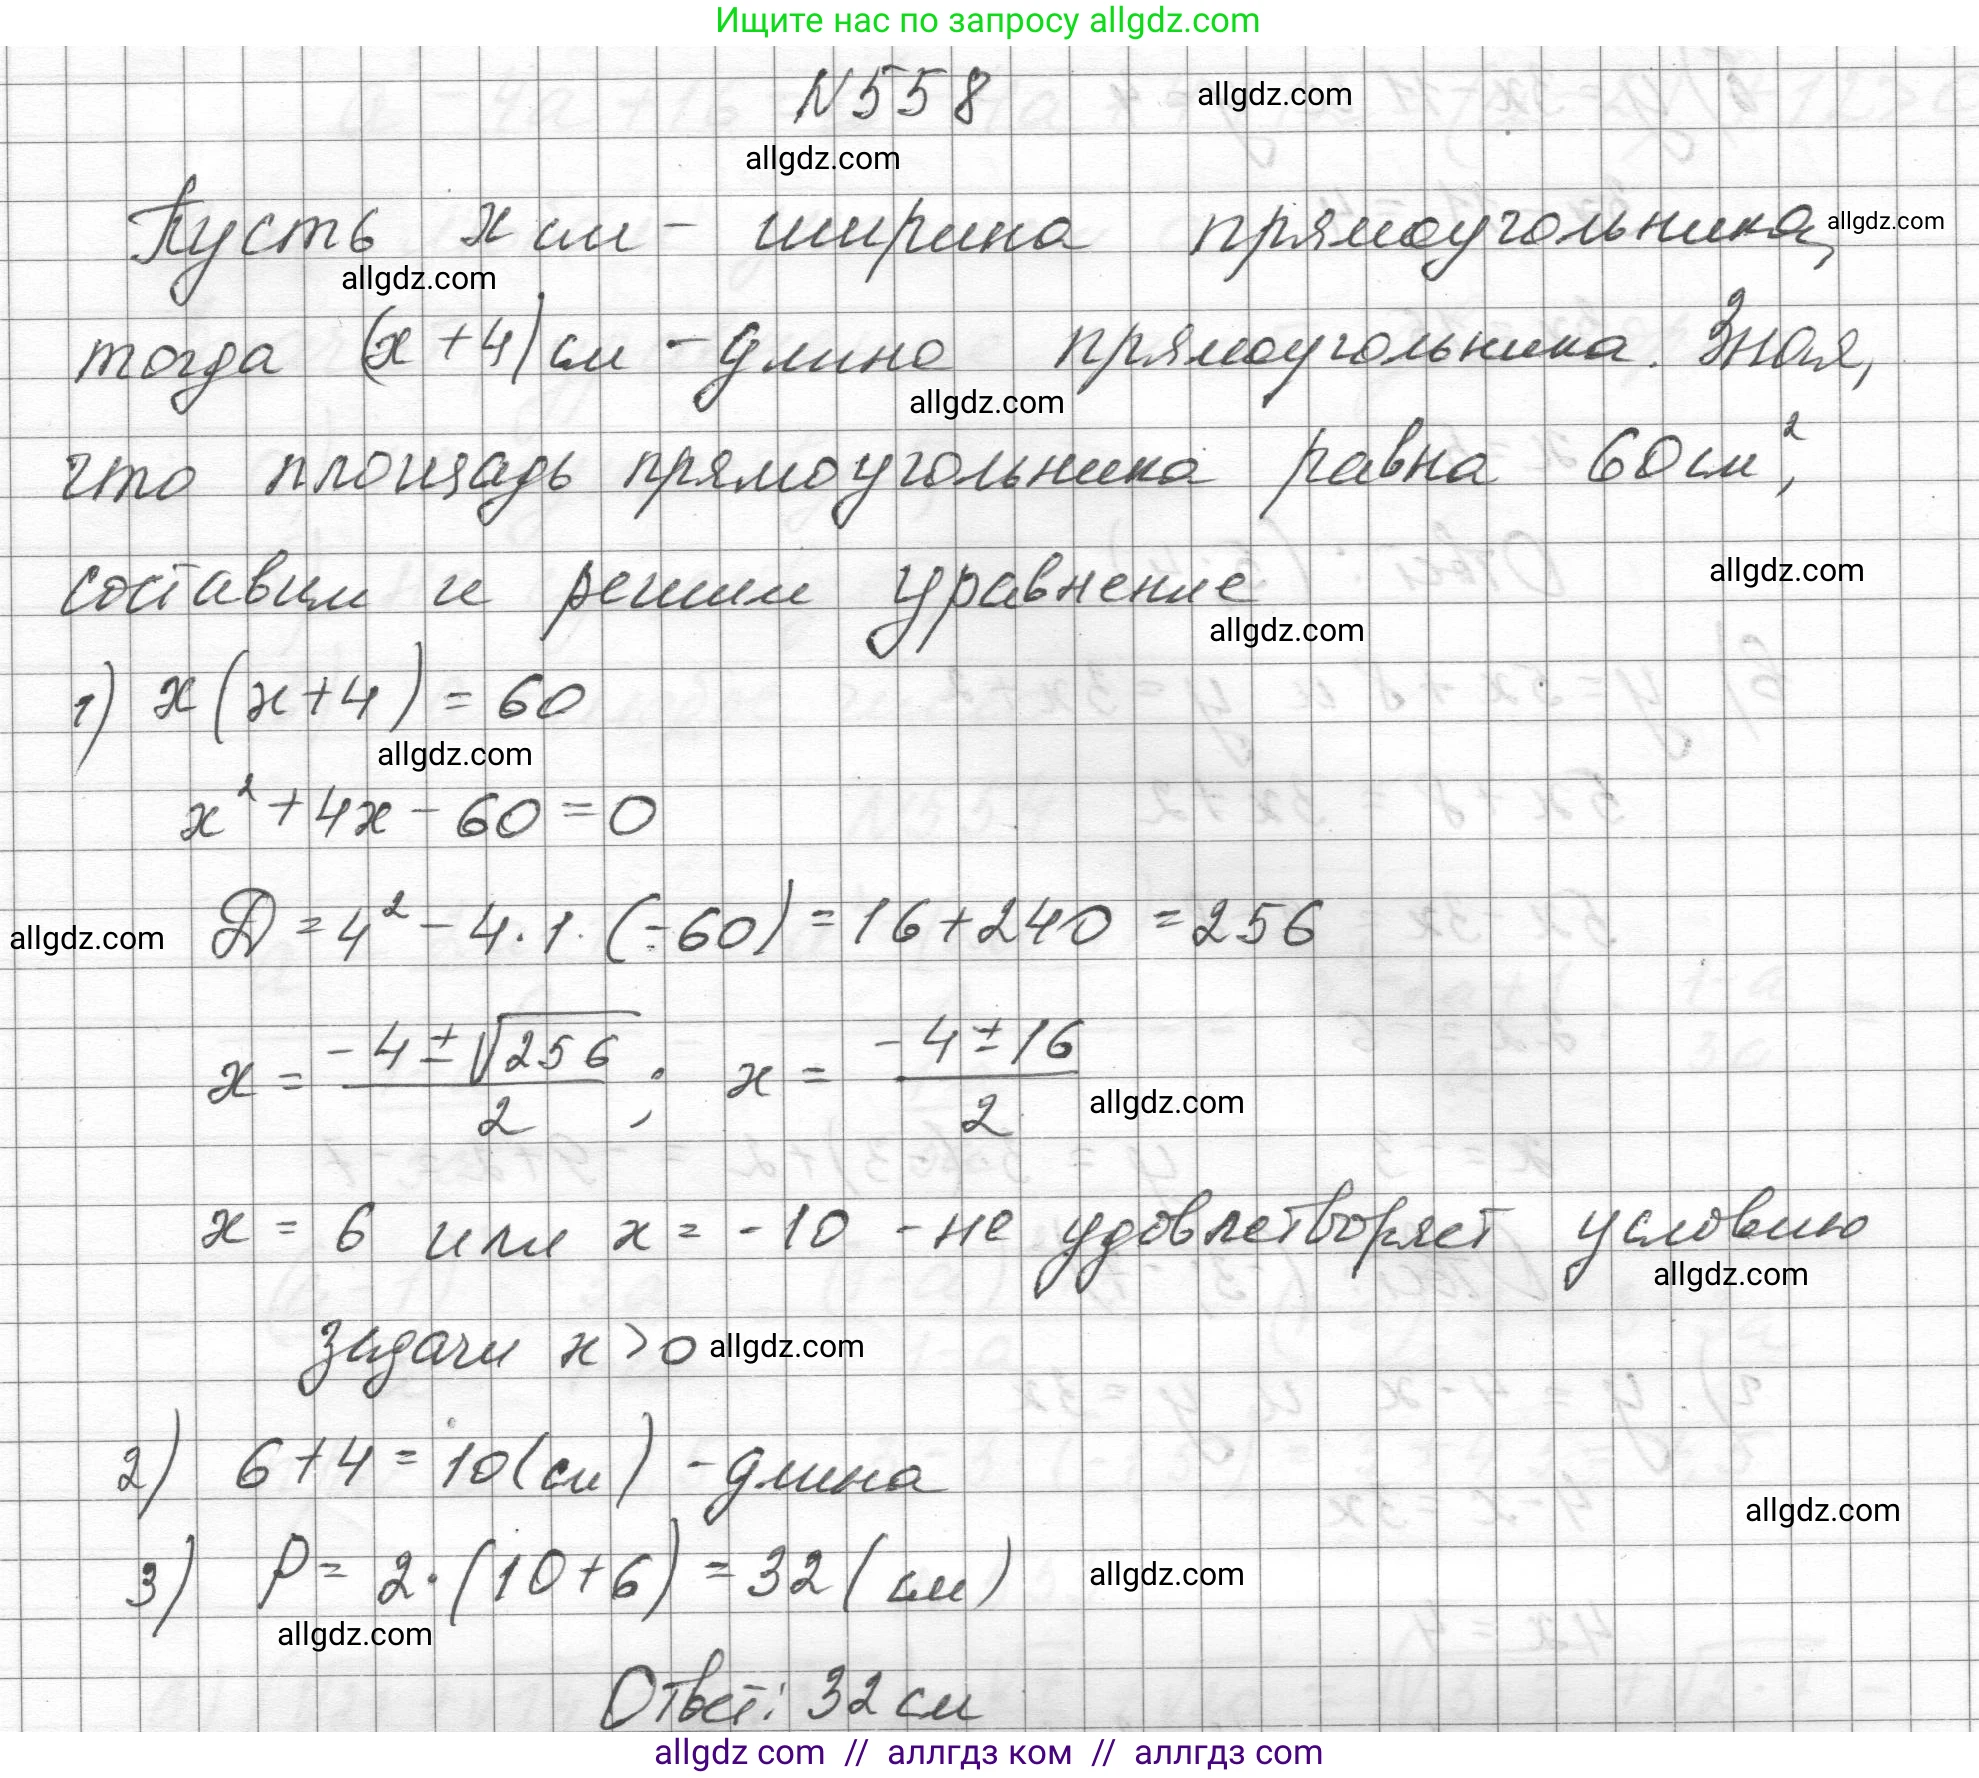 Ищите нас по запросу allgdz.com
N558
allgdz.com
allgdz.com
Пусть x см - ширина прямоугольника,
allgdz.com
allgdz.com
тогда (x+4) см - длина прямоугольника. Зная,
allgdz.com
что площадь прямоугольника равна 60 см²,
составим и решим уравнение
allgdz.com
allgdz.com
1) x(x+4) = 60
allgdz.com
x² + 4x - 60 = 0
allgdz.com
D = 4² - 4·1·(-60) = 16 + 240 = 256
x = (-4 ± √256)/2; x = (-4 ± 16)/2
allgdz.com
x = 6 или x = -10 - не удовлетворяет условию
allgdz.com
задачи x > 0
allgdz.com
2) 6 + 4 = 10 (см) - длина
allgdz.com
3) P = 2·(10+6) = 32 (см)
allgdz.com
allgdz.com
Ответ: 32 см
allgdz com // аллгдз ком // аллгдз com